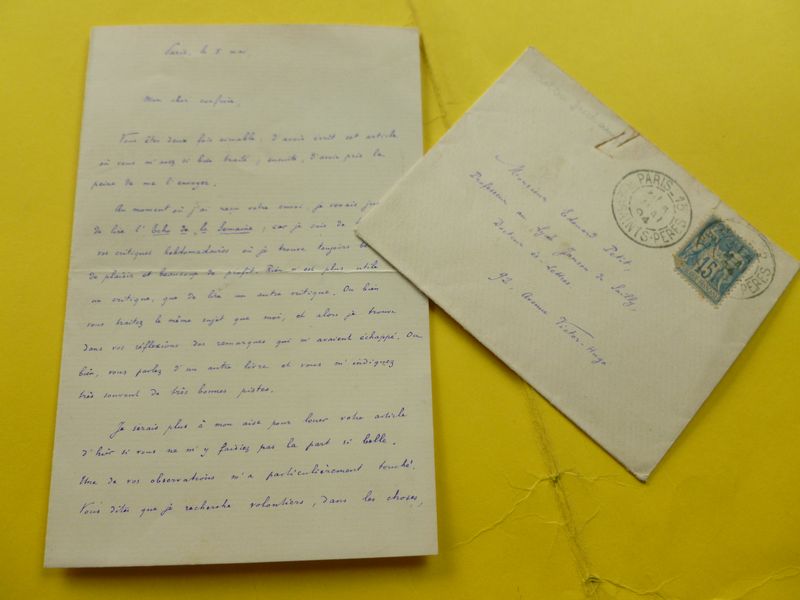 Paris, le 8 mai
Mon cher confrère,
Vous êtes deux fois aimable, d'avoir écrit cet article
où vous m'avez si bien traité ; ensuite, d'avoir pris la
peine de me l'envoyer.
Au moment où j'ai reçu votre envoi, je venais
de lire l'Echo de la Semaine ; car je suis de
vos critiques hebdomadaires où je trouve toujours
de plaisir et beaucoup de profit. Rien n'est plus utile
un critique, que de lire un autre critique. Ou bien
vous traitez le même sujet que moi, et alors je trouve
dans vos réflexions des remarques qui m'avaient échappé. Ou
bien, vous parlez d'un autre livre et vous m'indiquez
très souvent de très bonnes pistes.
Je serais plus à mon aise pour louer votre article
d'hier si vous ne m'y faisiez pas la part si belle.
Une de vos observations m'a particulièrement touché.
Vous dites que je recherche volontiers, dans les choses,
Monsieur Edouard Petit,
Professeur au Lycée Janson de Sailly,
Docteur ès Lettres
92, Avenue Victor-Hugo
PARIS-15
MAI
94
STS-PERES
15
PERES